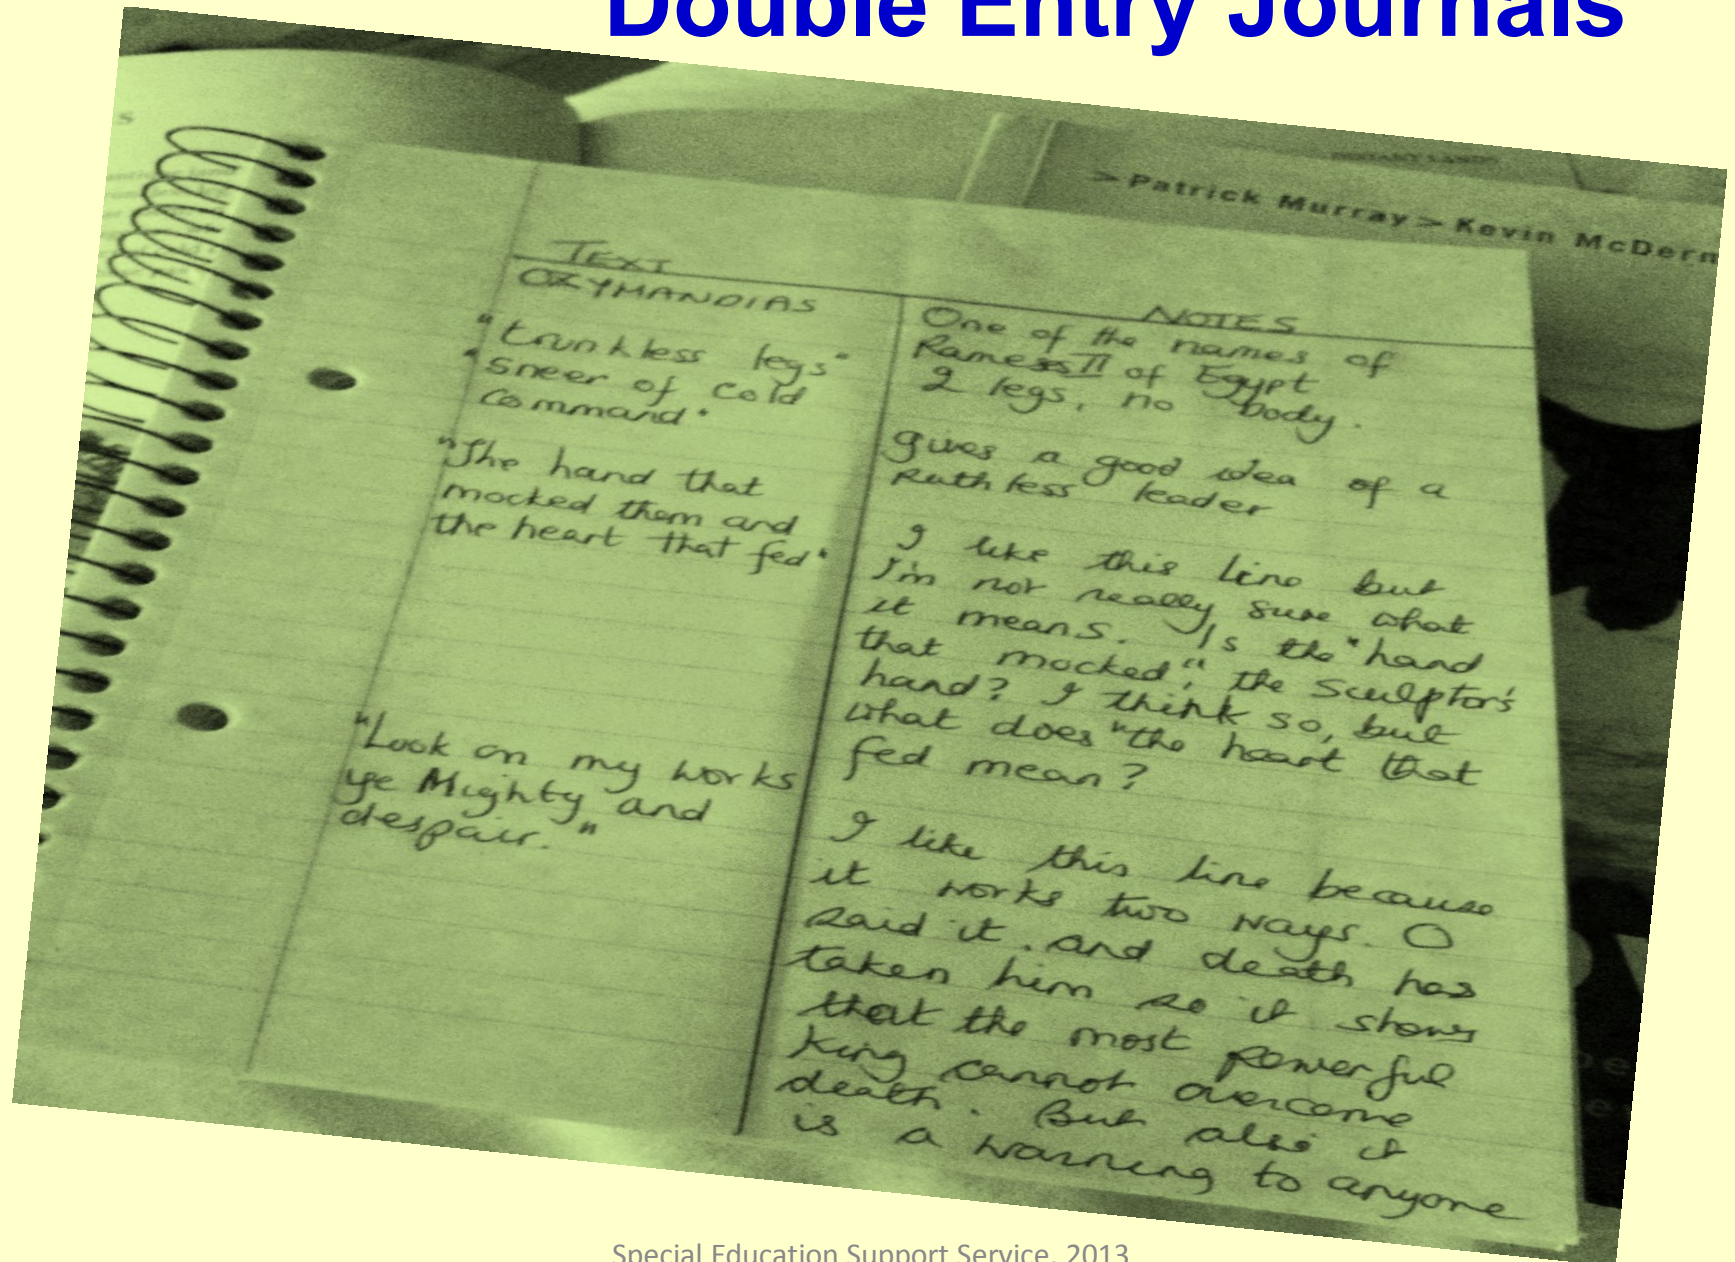 Double Entry Journals
s
>Patrick Murray>Kevin McDerm
TEXT
OZYMANDIAS
"trunkless legs"
"sneer of cold
command"
"The hand that
mocked them and
the heart that fed"
"Look on my works
ye Mighty and
despair."
NOTES
One of the names of
Ramesss II of Egypt
2 legs, no body.
gives a good idea of a
Ruthless leader
I like this line but
I'm not really sure what
it means. Is the "hand
that mocked", the sculptor's
hand? I think so, but
what does "the heart that
fed mean?
I like this line because
it works two ways. O
said it. and death has
taken him so it shows
that the most powerful
King cannot overcome
death. But also it
is a warning to anyone
Special Education Support Service, 2013